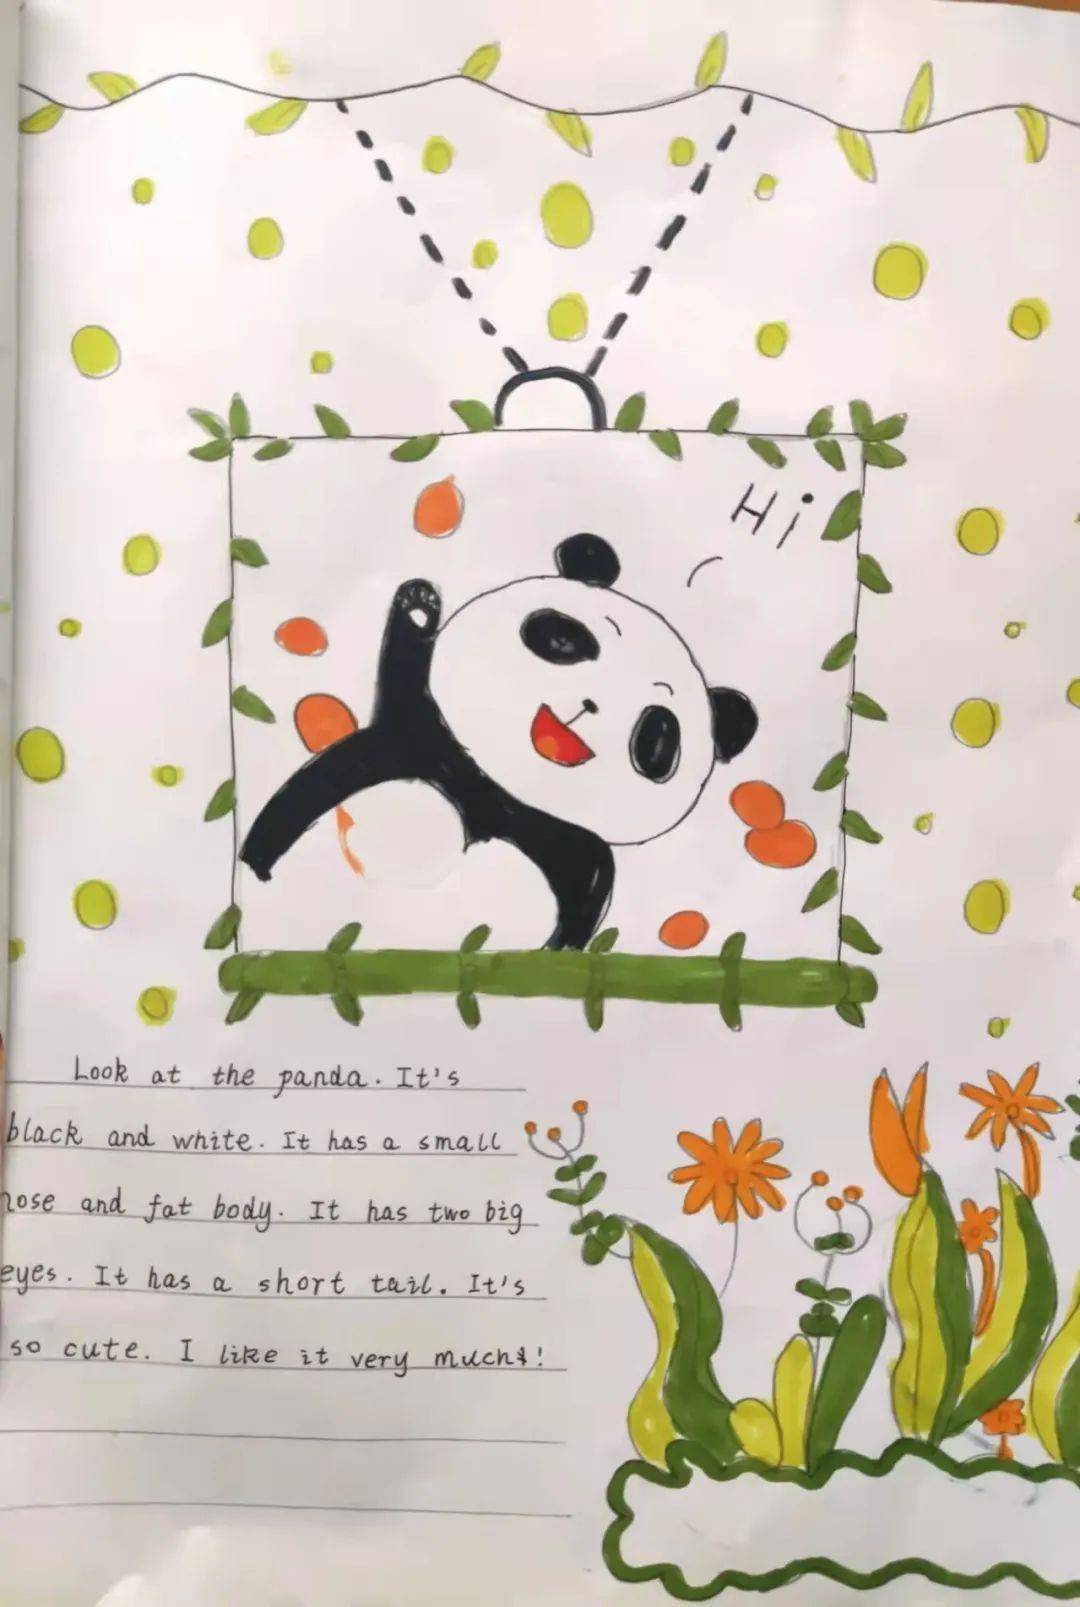 Hi
Look at the panda. It's
black and white. It has a small
nose and fat body. It has two big
eyes. It has a short tail. It's
so cute. I like it very much!